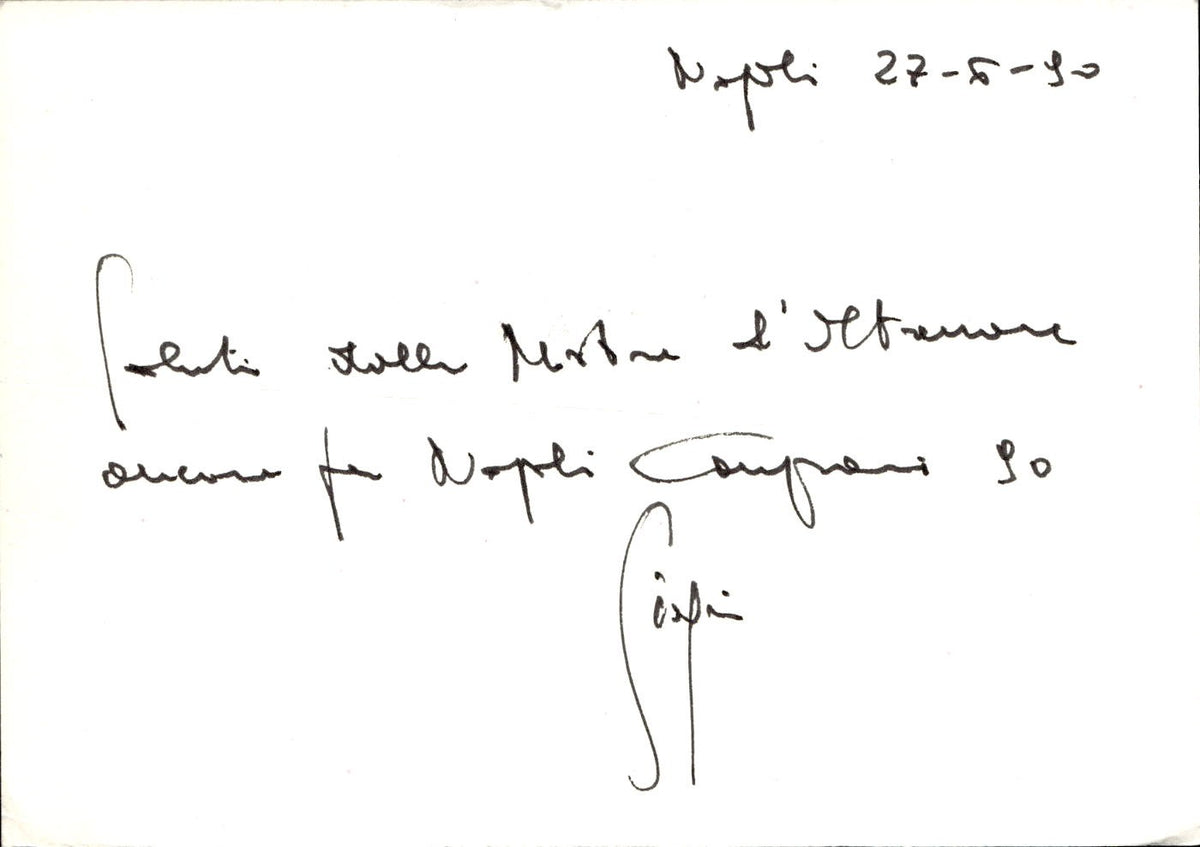 Napoli 27-5-90
Saluti dalla Mostra d'Oltremare
ancora per Napoli Campania 90